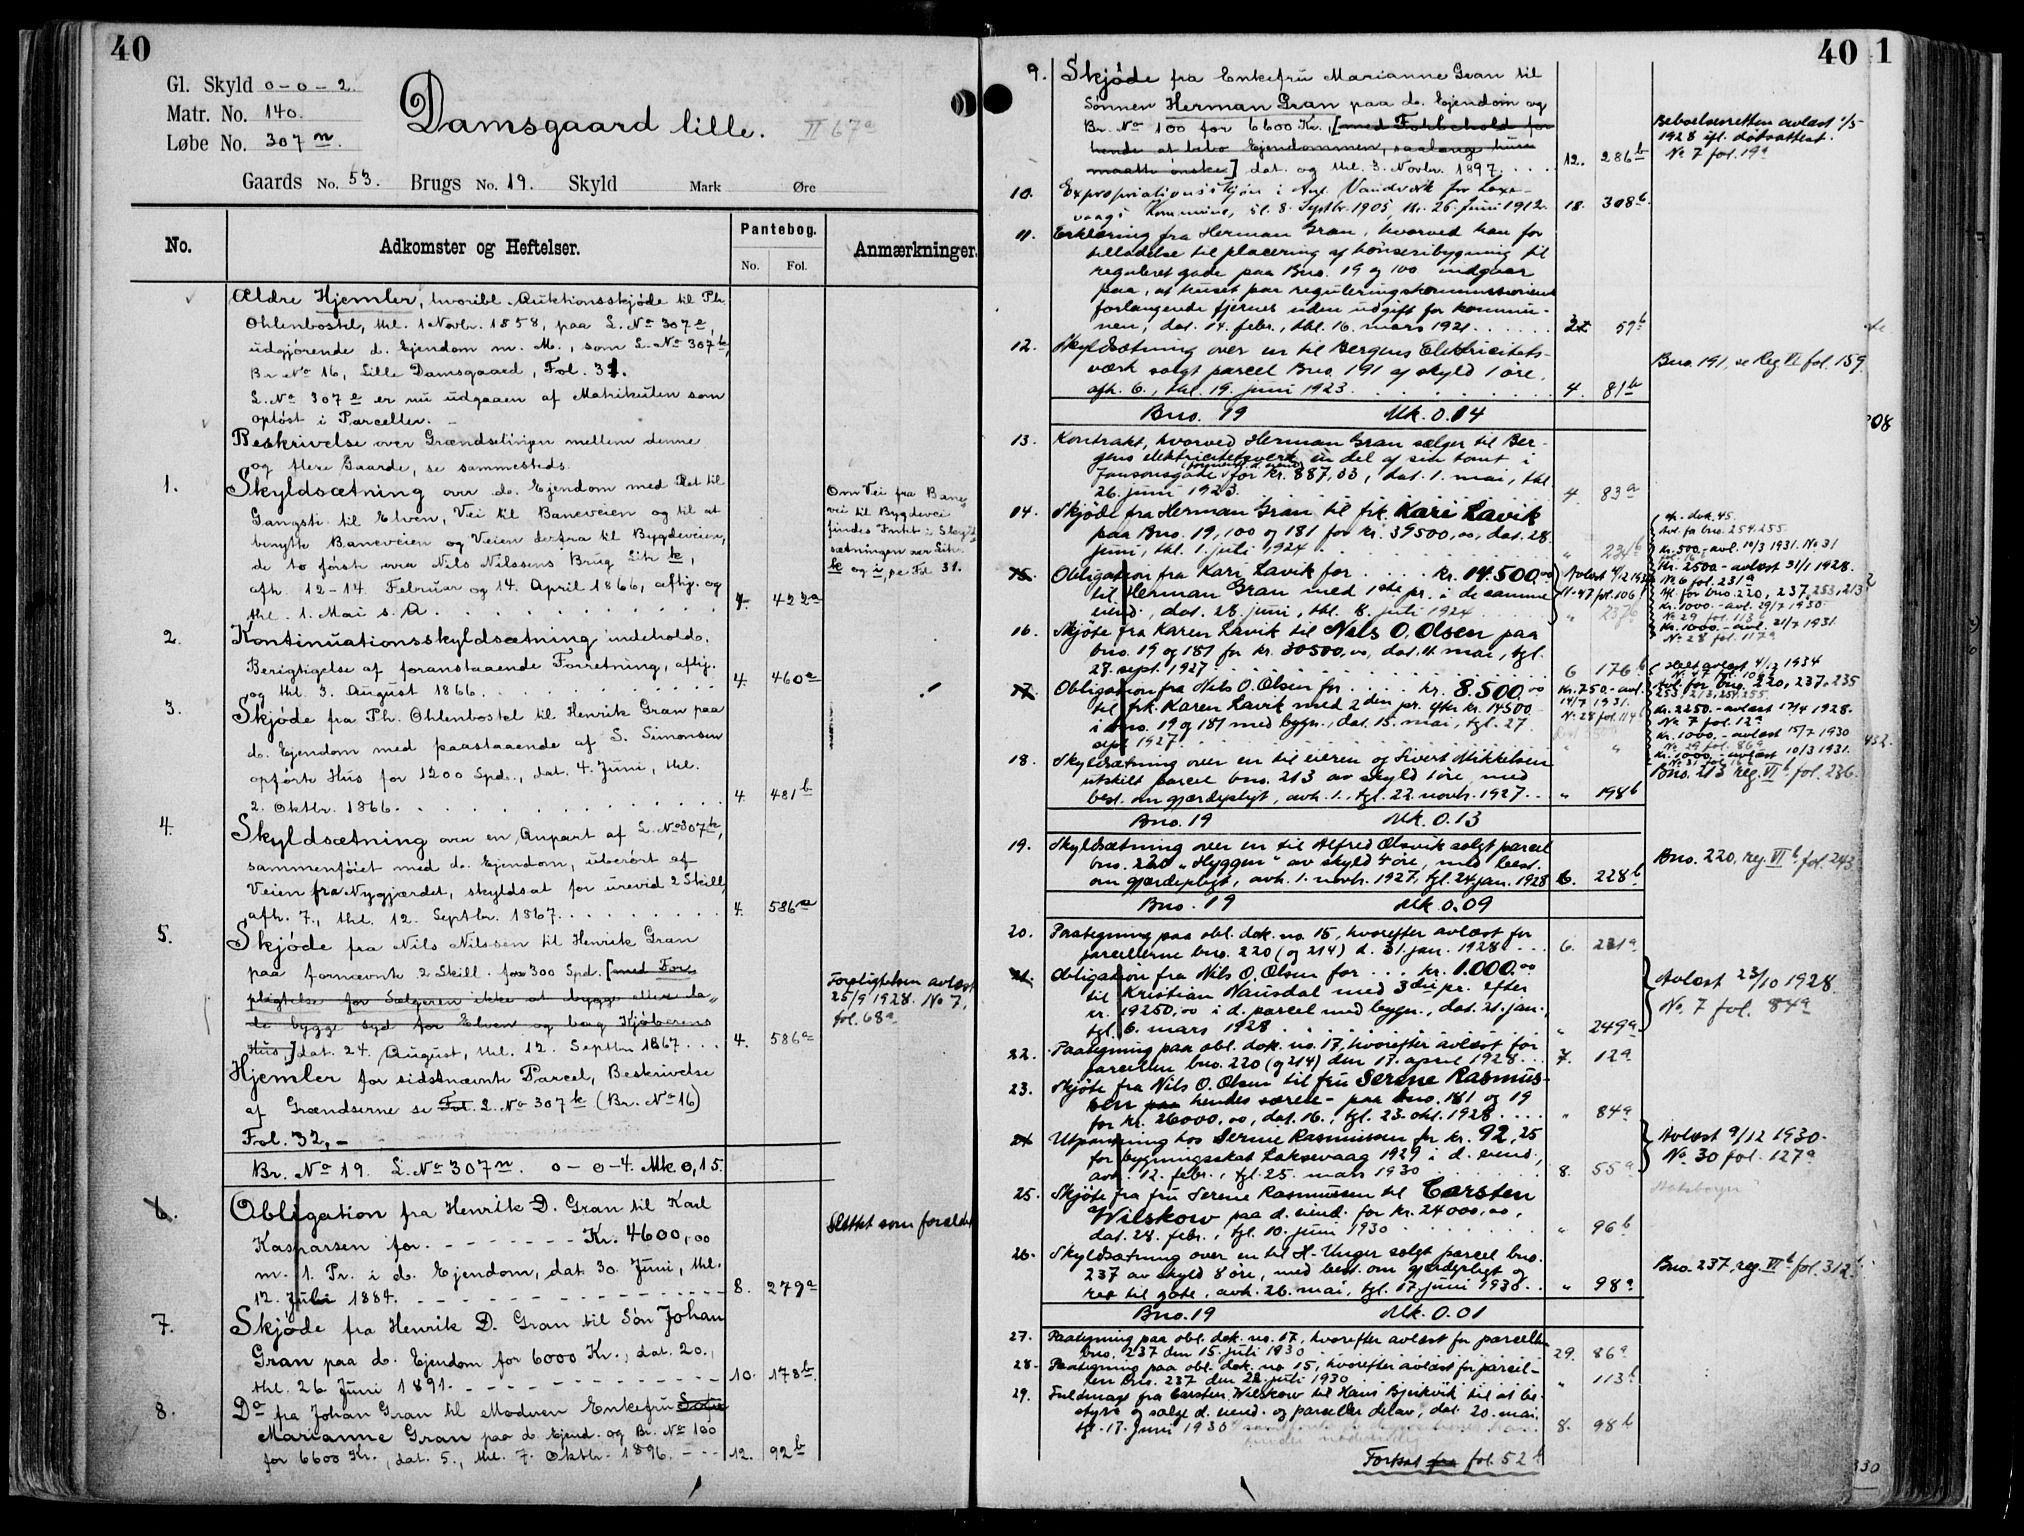 40
Gl. Skyld 0-0-2.
Matr. No. 140.
Løbe No. 307 n.
Damsgaard lille. II 67a
Gaards No. 53. Brugs No. 19. Skyld Mark Øre
No. Adkomster og Heftelser. Pantebog. Anmærkninger.
No. Fol.
Ældre Hjemler, hvoribl. Auktionsskjøde til Ph.
Ohlenbostel, thl. 1 Novbr. 1858, paa L. No 307 e,
udgjørende d. Ejendom m. M., som L. No 307 k,
Br No 16, Lille Damsgaard, Fol. 31.
L. No 307 e er nu udgaaen af Matrikulen som
opløst i Parceller. -
Beskrivelse over Grændselinjen mellem denne
og flere Gaarde, se sammesteds.
1. Skyldsætning over d. Ejendom med Ret til
Gangsti til Elven, Vei til Baneveien og til at
benytte Baneveien og Veien derfra til Bygdeveien,
de to først over Nils Nilssens Brug Litr k,
afh. 12-14. Februar og 14. April 1866, afhj. og
thl. 1. Mai s. A. 4. 422a
Om Vei fra Bane
vei til Bygdevei
findes Intet i Skyld
sætningen over Litr.
k og i, se Fol 31.
2. Kontinuationsskyldsætning indehold.
Berigtigelse af foranstaaende Forretning, afhj.
og thl. 3. August 1866. 4. 460a
3. Skjøde fra Ph. Ohlenbostel til Henrik Gran paa
d. Ejendom med paastaaende af S. Simonsen
opførte Hus for 1200 Spd., dat. 4. Juni, thl.
2. Oktbr. 1866. 4. 481b
4. Skyldsætning over en Anpart af L. No 307 k,
sammenføiet med d. Ejendom, uberørt af
Veien fra Nygjærdet, skyldsat for urevid 2 Skill
afh. 7., thl. 12. Septbr. 1867. 4. 586a
5. Skjøde fra Nils Nilssen til Henrik Gran
paa fornævnte 2 Skill. for 300 Spd. [med For
pligtelse for Sælgeren ikke at bygge eller la
de bygge syd for Elven og bag Kjøberens
Hus] dat. 24. August, thl. 12. Septbr 1867. 4. 586a
Forpligtelsen avlæst
25/9 1928. No 7,
fol. 68a.
Hjemler for sidstnævnte Parcel, Beskrivelse
af Grændserne se Fol. L. No 307 k (Br. No 16)
Fol. 32, -
Br. No 19. L. No 307 n. 0-0-4. Mk 0,15.
6. Obligation fra Henrik D. Gran til Karl
Kasparsen for Kr. 4600,00
m. 1. Pr. i d. Ejendom, dat. 30. Juni, thl.
12. Juli 1884. 8. 279a
Slettet som forældet
7. Skjøde fra Henrik D. Gran til Søn Johan
Gran paa d. Ejendom for 6000 Kr., dat. 20.,
thl. 26 Juni 1891. 10. 178b.
8. Do fra Johan Gran til Moderen Enkefru Sofie
Marianne Gran paa d. Ejend. og Br. No 100
for 6600 Kr., dat. 5., thl. 7. Oktbr. 1896. 12. 92b
40 1
9. Skjøde fra Enkefru Marianne Gran til
Sønnen Herman Gran paa d. Ejendom og
Br. No 100 for 6600 Kr., [med Forbehold for
hende at bebo Ejendommen, saalænge hun
maatte ønske] dat. og thl. 3. Novbr. 1897. 12. 286b
Beboelsesretten avlæst 1/5
1928 ifl. dødsattest.
No 7 fol. 19a
10. Expropriationsskjøn i Anl. Vandverk for Laxe-
vaags Kommune, sl. 8. Septbr. 1905, thl. 26. Juni 1912. 18. 308b.
11. Erklæring fra Herman Gran, hvorved han for
tilladelse til placering af hønseribygning til
reguleret gade paa Bno. 19 og 100 indgaar
paa, at huset paa reguleringskommissionens
forlangende fjernes uden udgift for kommu-
nen, dat. 14. febr., thl. 16. mars 1921. 57b
12. Skyldsætning over en til Bergens Elektricitets-
værk solgt parcel Bno. 191 af skyld 1 øre,
afh. 6., thl. 19. juni 1923. 4. 81b
Bno. 191, se Reg. VI fol. 159.
Bno. 19 Mk. 0.14
13. Kontrakt, hvorved Herman Gran sælger til Ber-
gens elektricitetsverk en del af sin tomt i
Jansonsgade for kr. 887,03, dat. 1. mai, thl
26. juni 1923. 4 83a
14. Skjøde fra Herman Gran til frk. Kari Lavik
paa Bno. 19, 100 og 181 for kr. 39500,00, dat. 28.
juni, thl. 1. juli 1924. " 234b
15. Obligation fra Kari Lavik for kr. 14.500,00
til Herman Gran med 1ste pr. i de samme
eiend., dat. 28. juni, thl. 8. juli 1924 " 237b
Avlæst 4/12 1934
No 47 fol. 106
kr. 500,- avl. 10/3 1931. No 31
Kr. 2500.- avlæst 31/1 1928.
No 6 fol. 231a
Kr. 1000.- avl. 29/7 1930
No 29 fol. 113
Kr. 1000.- avl. 21/7 1931.
No 28 fol. 117a
16. Skjøte fra Karen Lavik til Nils O. Olsen paa
bno. 19 og 181 for kr. 30500,00, dat. 4. mai, tgl.
27. sept. 1927. 6 176b
17. Obligation fra Nils O. Olsen for kr. 8.500,00
til frk. Karen Lavik med 2den pr. efter kr. 14500
i bno. 19 og 181 med bygn., dat. 15. mai, tgl. 27.
sept 1927. " "
Kr. 750.- avl.
14/7 1931.
No 28 fol. 114
Helt avlæst 4/12 1934
Avl. for bno. 220, 237, 235
Kr. 2250.- avlæst 17/4 1928.
No 7 fol. 12a
Kr. 1000.- avlæst 15/7 1930
No 29 fol. 86a
Kr. 1000.- avlæst 10/3 1931.
18. Skyldsætning over en til eieren og Sivert Mikkelsen
utskilt parcel bno. 213 av skyld 1 øre, med
best. om gjærdepligt, avh. 1., tgl. 22. novbr. 1927. " 198b
Bno. 213 reg. VI b fol. 236.
Bno. 19 Mk. 0.13
19. Skyldsætning over en til Alfred Alsvik solgt parcel
bno. 220 "Hyggen" av skyld 4 øre, med best.
om gjærdepligt, avh. 1. novbr. 1927, tgl. 24 jan. 1928 6. 228b
Bno. 220, reg. VI b fol. 243
Bno. 19 Mk 0.09
20. Paategning paa obl. dok. no. 15, hvorefter avlæst for
parcellerne bno. 220 (og 214) d. 31. jan. 1928. 6. 231a
21. Obligation fra Nils O. Olsen for kr. 1.000,00
til Kristian Nausdal med 3die pr. efter
kr. 19250,00 i d. parcel med bygn., dat. 21. jan.,
tgl. 6. mars 1928 " 249a
Avlæst 23/10 1928
No. 7 fol. 84a
22. Paategning paa obl. dok. no. 17, hvorefter avlæst for
parcellen bno. 220 (og 214) den 17. april 1928. 7. 12a
23. Skjøte fra Nils O. Olsen til fru Serene Rasmus-
sen paa hendes særeie - paa bno. 181 og 19
for kr. 26000,00, dat. 16., tgl. 23. okt. 1928. " 84a
24 Utpantning hos Serene Rasmussen for kr. 92,25
for bygningsskat Laksevaag 1929 i d. eiend.,
avh. 12. febr., tgl. 25. mars 1930 8. 55a
Avlæst 9/12 1930.
No. 30 fol. 127a
25. Skjøte fra fru Serene Rasmussen til Carsten
Wilskow paa d. eiend. for kr. 24000,00,
dat. 28. febr., tgl. 10. juni 1930 " 96b
Statsborger
26. Skyldsætning over en til H. Unger solgt parcel bno.
237 av skyld 8 øre, med best. om gjærdepligt og
ret til gate, avh. 26. mai, tgl. 17. juni 1930. " 98a
Bno. 237, reg. VI b fol. 312
Bno. 19 Mk. 0.01
27. Paategning paa obl. dok. no. 17, hvorefter avlæst for parcellen
bno. 237 den 15. juli 1930 29. 86a
28. Paategning paa obl. dok. no 15, hvorefter avlæst for parcel-
len bno. 237 den 22. juli 1930 " 113b
29. Fuldmagt fra Carsten Wilskow til Hans Bjerkvik til at be-
styre og sælge d. eiend. og parceller derav, dat. 20. mai,
tgl. 17. juni 1930 8. 98b
Fortsat fra fol. 52 b